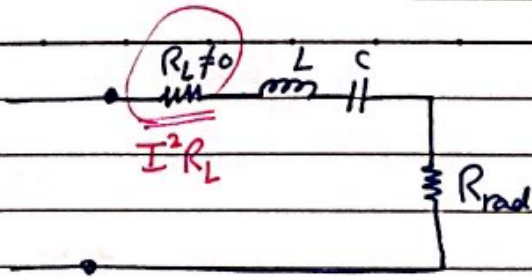 R_L ≠ 0 L C
I²R_L
R_rad